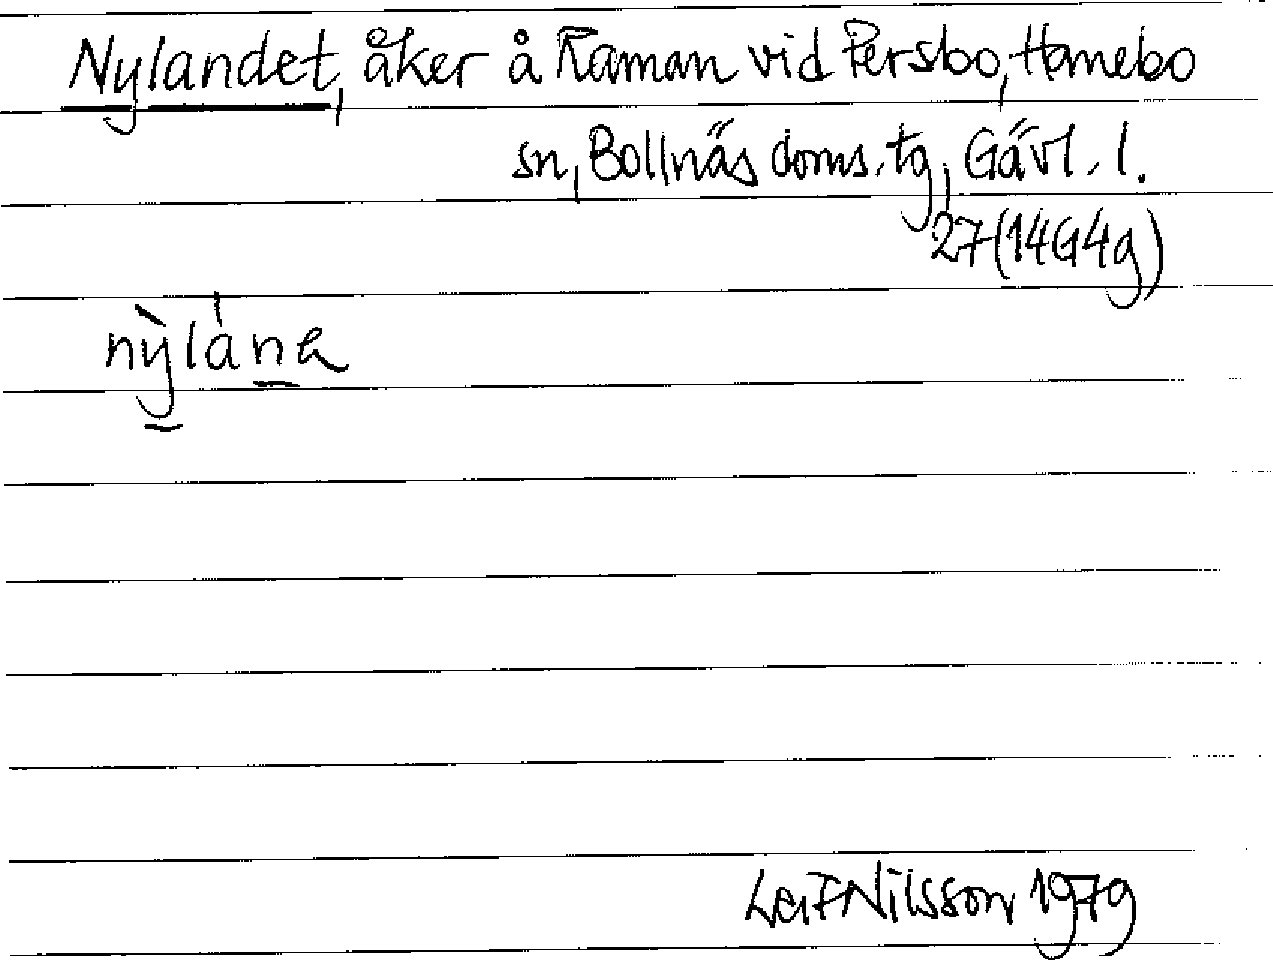 Nylandet, åker å Raman vid Persbo, Hanebo
sn, Bollnäs doms. tg, Gävl. l.
27(14G4g)
nỳlána
Leif Nilsson 1979